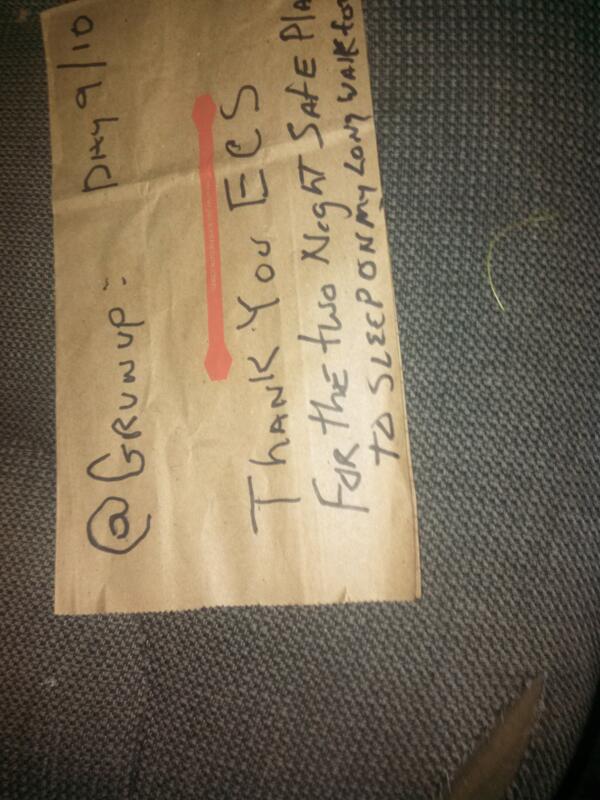 @GRUNUP: DAY 9/10
THANK YOU ECS
FOR the two Night SAFE PLA
TO SLEEP ON MY LONG WALK for